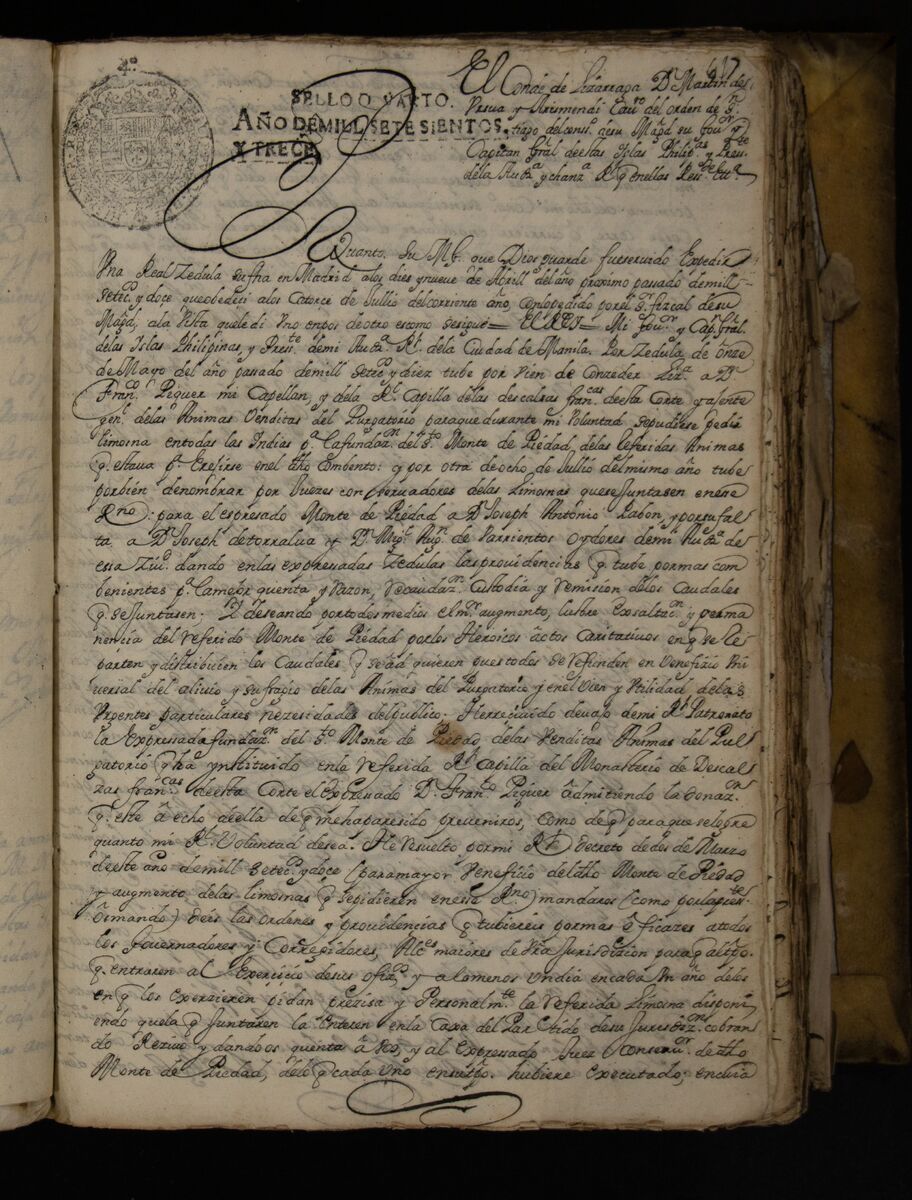 4º
SELLO QVARTO.
AÑO DE MILL SETESIENTOS,
Y TRECE
617
El Conde de Lizarraga Dn Martin de
Vrsua y Arismendi Cauº del orden de S.
tiago del consº. de su Magd su Govor y
Capitan Gral de estas Islas Philips y Presste
dela Audª y chanzª Rl q en ellas Resde Ettª
Quanto. Su Md. que Dios guarde fue servido Expedir
Vna Real Zedula su ffha en Madrid alos dies y nueue de Abrill del año proximo pasado de mill
setecs y doce que obedeci alos Catorce de Jullio del corriente año, con lo pedido por el sr fizcal de su
Magd, ala Vista que le di Vno enpos de otro es como se sigue = EL REY = Mi Govor y Capn Gral.
delas Islas Philipinas, y Presste demi Audª Rl. dela Ciudad de Manila. Por Zedula de onze
de Mayo del año pasado demill setecs y diez tube por vien de Conzeder Lizª a Dn
Franco Piquer mi Capellan, y dela Rl Capilla delas descalsas francas de esta Corte y ajente
genl delas Animas Venditas del Purgatorio para que durante mi Voluntad sepudiese pedir
limosna entodas las Indias pª La fundazn del sto Monte de Piedad, delas Referidas Animas
q estaua pª Erejirse en el dho Combento: y por otra de ocho de Jullio del mismo año tube
por bien denombrar por Juezes conservadores delas Limosnas que se Juntasen en ese
Rno: para el espresado Monte de Piedad a Dn Joseph Antonio Pabon, y por su fal
ta a Dn Joseph de torralua y Dn Migl Augn de Barrientos Oydores demi Audª de
esa Ziud. dando en las expressadas Zedulas las providencias q tube por mas com
benientes pª La mejor quenta y Razon, Recaudazn Custodia y Remision delos Caudales
q se Juntasen; Y deseando por todos medios el mor augmento, lustre Exsaltacn y perma
nencia del Referido Monte de Piedad por los Heroicos actos Caritativos en q se Re
parten y distribuien los Caudales q se ad quieren pues todos se Refunden en Venefizio Vni
uersal del aliuio y sufragio delas Animas del Purgatorio y en el Vien y Vtilidad delas
Vrgentes particulares nezesidades del publico. He rrecivido devajo demi Rl Patronato
la Expressada fundazn del sto Monte de Piedad delas Venditas Animas del Pur
gatorio q ha ynstituido en la Referida Rl Capilla del Monasterio de Descal
zas francas de esta Corte el Expresado Dn Franco Piquer Admitiendo la Donazon
q este á echo de ella de q me ha paresido preveniros, como de q para que se logre
quanto mi Rl Voluntad desea. He Resuelto por mi Rl Decreto de dos de Marzo
de este año demill setecs y doce (para mayor Veneficio del dho Monte de Piedad
y augmento delas limosnas q se pidieren en ese Rno) mandaros (como por la preste
os mando) deis las ordenes y providencias q tubiereis por mas eficazes a todos
los Governadores y Corregidores, Alces maiores de Vra Jurisdizion para q al tpo.
q entraren al Exersicio de sus ofizs y a lo menos Vn dia en cada Vn año delos
en q los exerzieren pidan preziza y Personalmte la Referida Limosna disponi
endo que la q Juntaren la Enteren en la Caxa del Partido de su Jurisdizn cobran
do Rezivo y dandoos quenta á Vos, y al Expressado Juez Conservor de dho
Monte de Piedad, delo q cada Vno en su tpo. hubiere Executado; en cuia